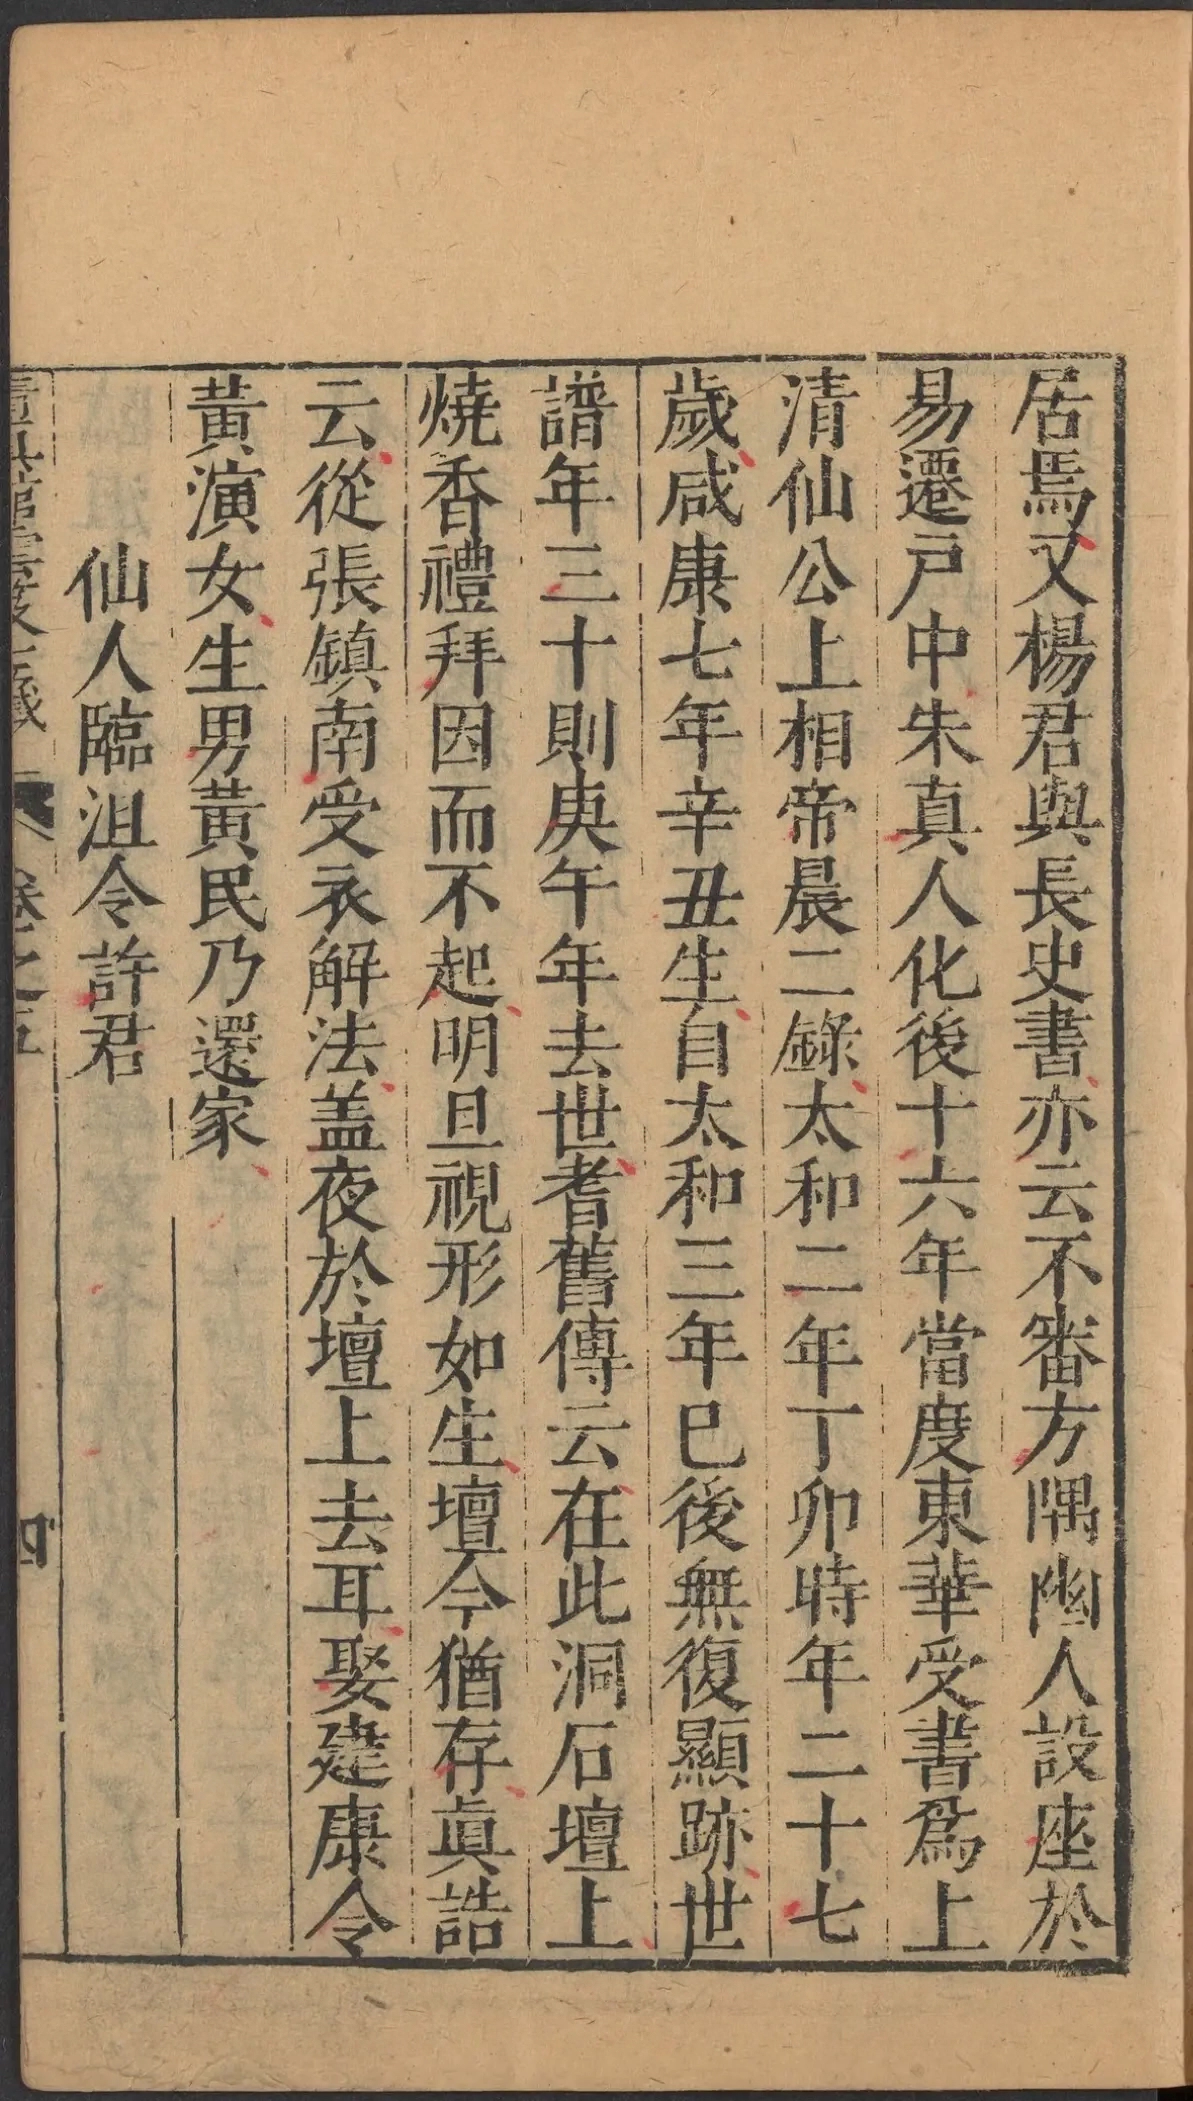 居焉又楊君與長史書亦云不審方隅幽人設座於
易遷戸中朱真人化後十六年當度東華受書爲上
清仙公上相帝晨二錄太和二年丁卯時年二十七
歲咸康七年辛丑生自太和三年已後無復顯跡世
譜年三十則庚午年去世耆舊傳云在此洞石壇上
燒香禮拜因而不起明旦視形如生壇今猶存真誥
云從張鎮南受衣解法盖夜於壇上去耳娶建康令
黃演女生男黃民乃還家
仙人臨沮令許君